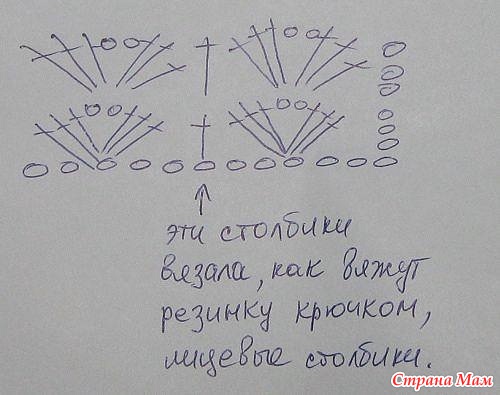 эти столбики
вязала, как вяжут
резинку крючком,
лицевые столбики.
Страна Мам